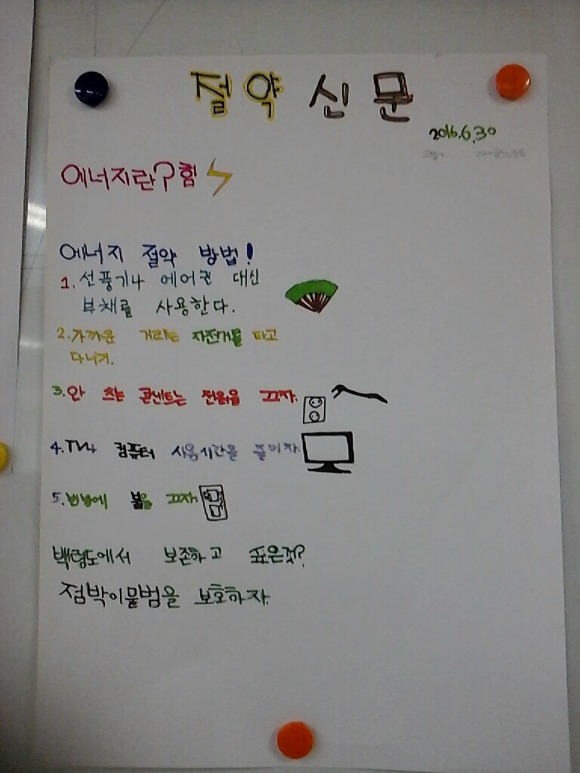 절약 신문
2016.6.30
에너지란? 힘
에너지 절약 방법!
1. 선풍기나 에어컨 대신
부채를 사용한다.
2. 가까운 거리는 자전거를 타고
다니기.
3. 안 쓰는 콘센트는 전원을 끄자.
4. TV나 컴퓨터 사용시간을 줄이자.
5. 빈방에 불을 끄자.
백령도에서 보존하고 싶은것?
점박이물범을 보호하자.